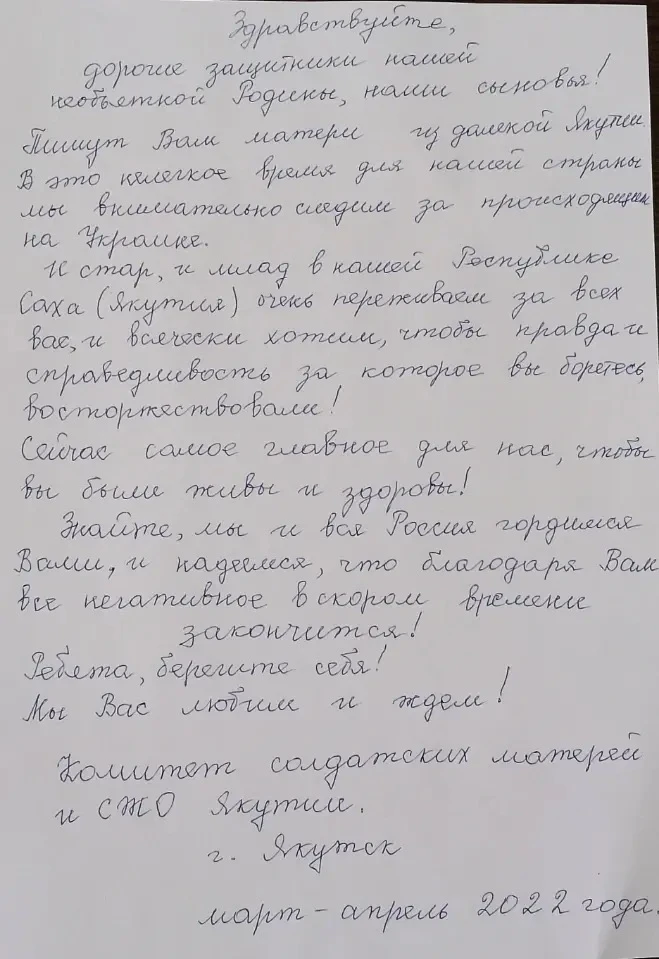 Здравствуйте,
дорогие защитники нашей
необъятной Родины, наши сыновья!
Пишут Вам матери из далекой Якутии.
В это нелегкое время для нашей страны
мы внимательно следим за происходящим
на Украине.
И стар, и млад в нашей Республике
Саха (Якутия) очень переживаем за всех
вас, и всячески хотим, чтобы правда и
справедливость за которое вы боретесь,
восторжествовали!
Сейчас самое главное для нас, чтобы
вы были живы и здоровы!
Знайте, мы и вся Россия гордимся
Вами, и надеемся, что благодаря Вам
все негативное в скором времени
закончится!
Ребята, берегите себя!
Мы Вас любим и ждем!
Комитет солдатских матерей
и СЖО Якутии.
г. Якутск
март - апрель 2022 года.